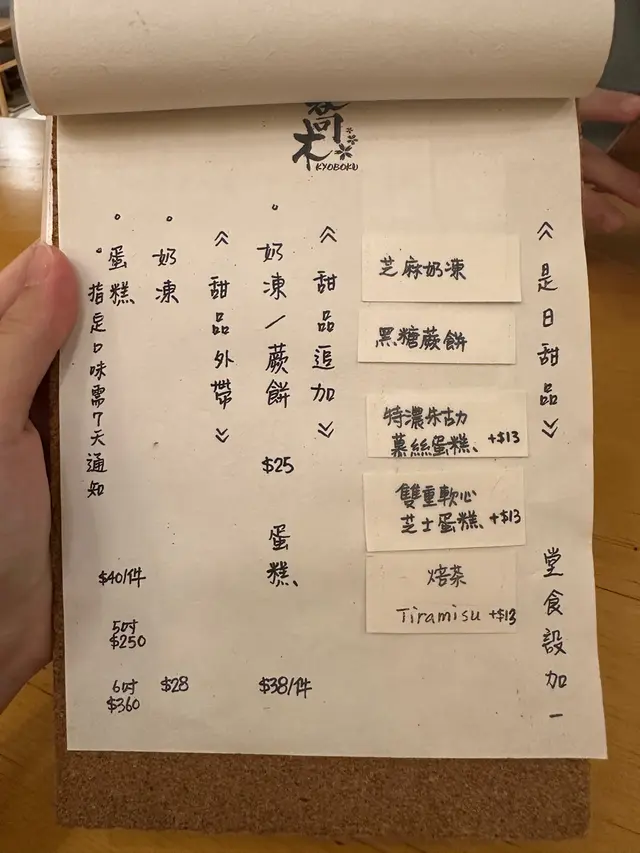 喬木
KYOBOKU
《是日甜品》 堂食設加一
芝麻奶凍
黑糖蕨餅
特濃朱古力
慕絲蛋糕 +$13
雙重軟心
芝士蛋糕 +$13
焙茶
Tiramisu +$13
《甜品追加》
。奶凍/蕨餅 $25 蛋糕 $38/件
《甜品外帶》
。奶凍 $28
。蛋糕 $40/件
5吋 $250
6吋 $360
。指定口味需7天通知